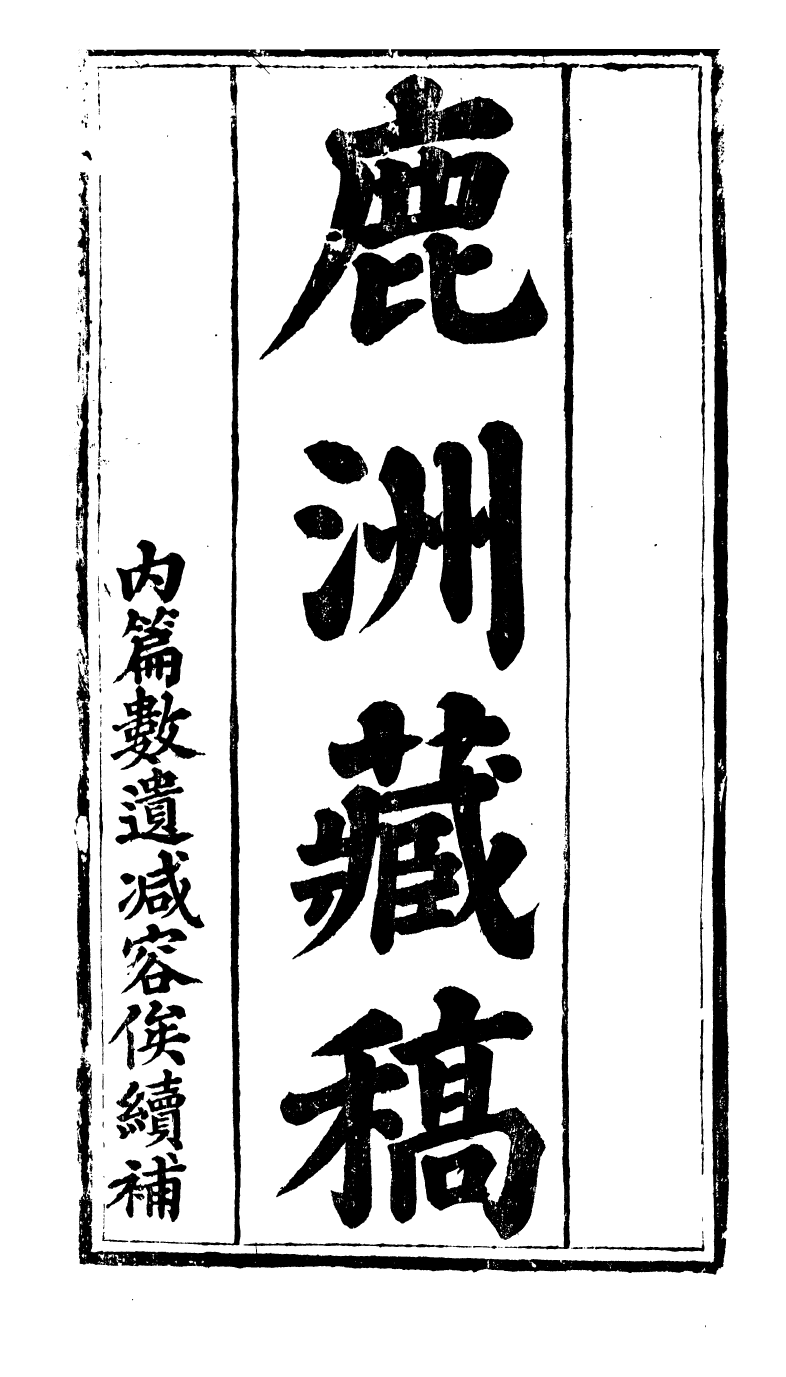 鹿洲藏稿
內篇數遺減容俟續補